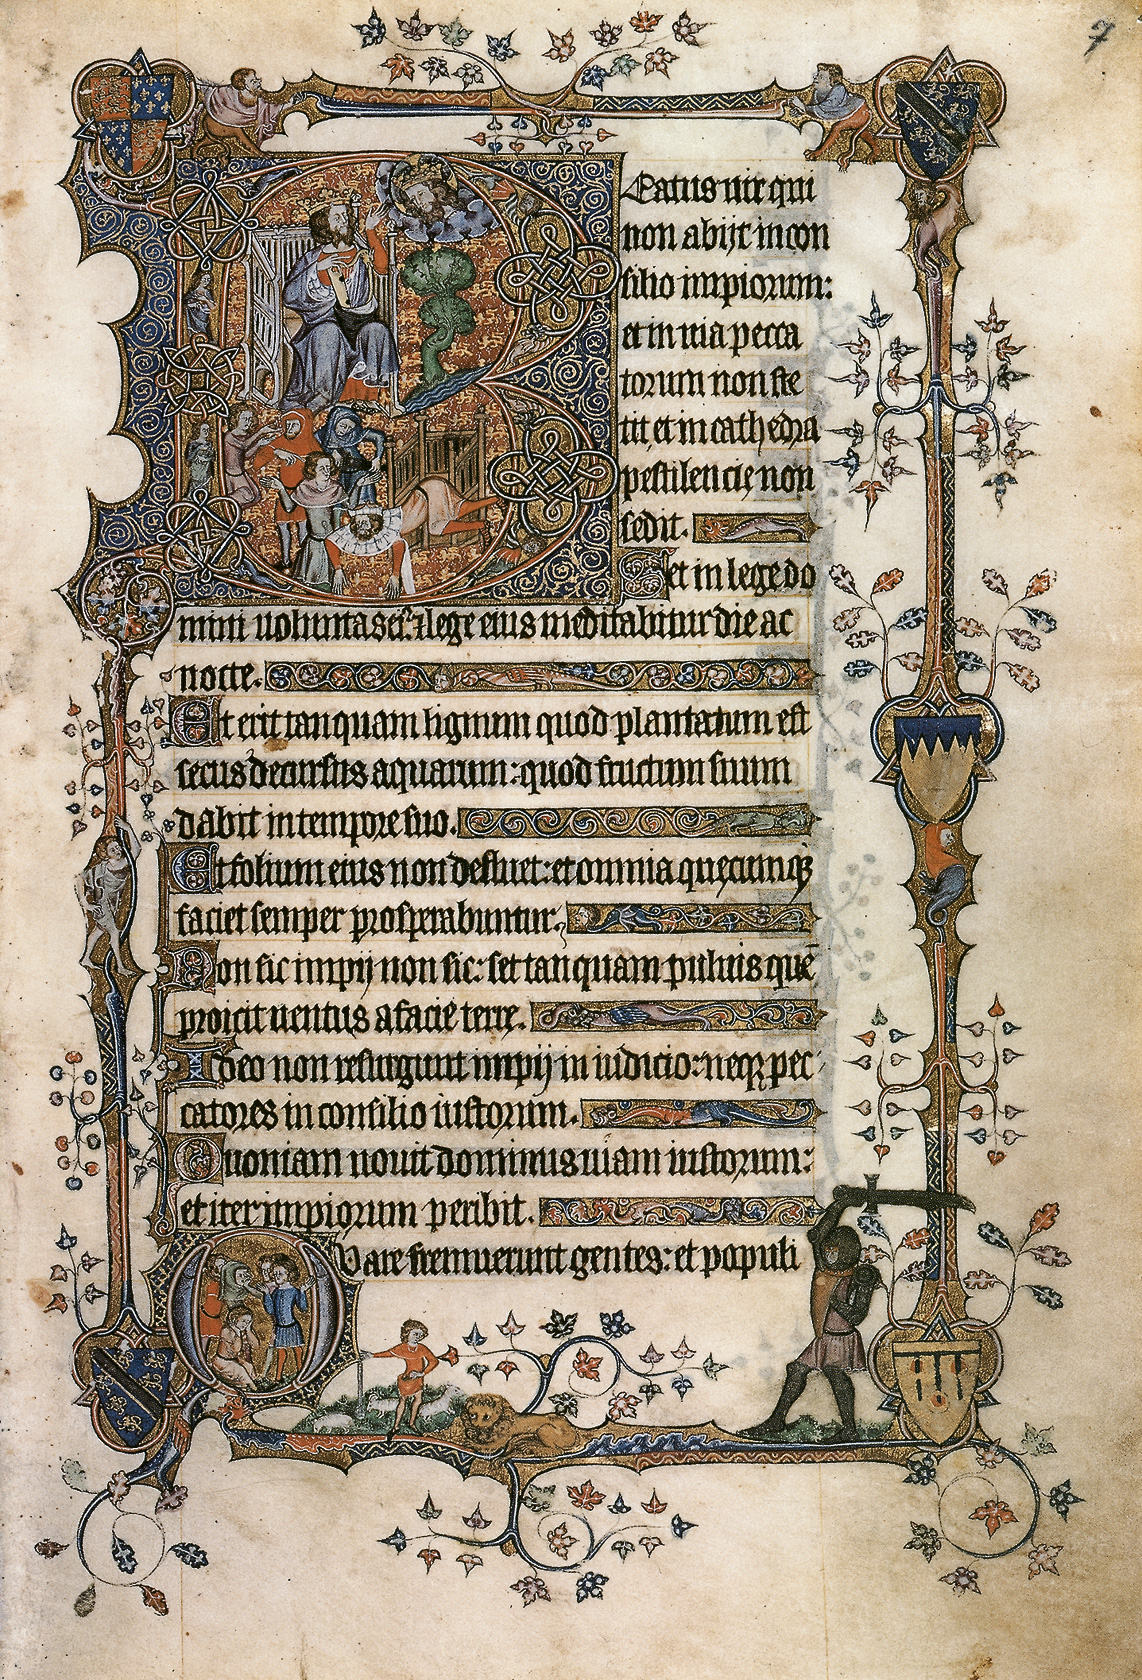 7
Beatus uir qui
non abijt in con
silio impiorum:
et in uia pecca
torum non ste
tit, et in cathedra
pestilencię non
sedit.
Set in lege do
mini uoluntas eiꝰ: ⁊ lege eius meditabitur die ac
nocte.
Et erit tanquam lignum quod plantatum est
secus decursus aquarum: quod fructum suum
dabit in tempore suo.
Et folium eius non defluet: et omnia quęcumqꝫ
faciet semper prosperabuntur.
Non sic impij non sic: set tanquam puluis quē
proicit uentus a facie terrę.
Ideo non resurgunt impij in iudicio: neqꝫ pec
catores in consilio iustorum.
Quoniam nouit dominus uiam iustorum:
et iter impiorum peribit.
Quare fremuerunt gentes: et populi